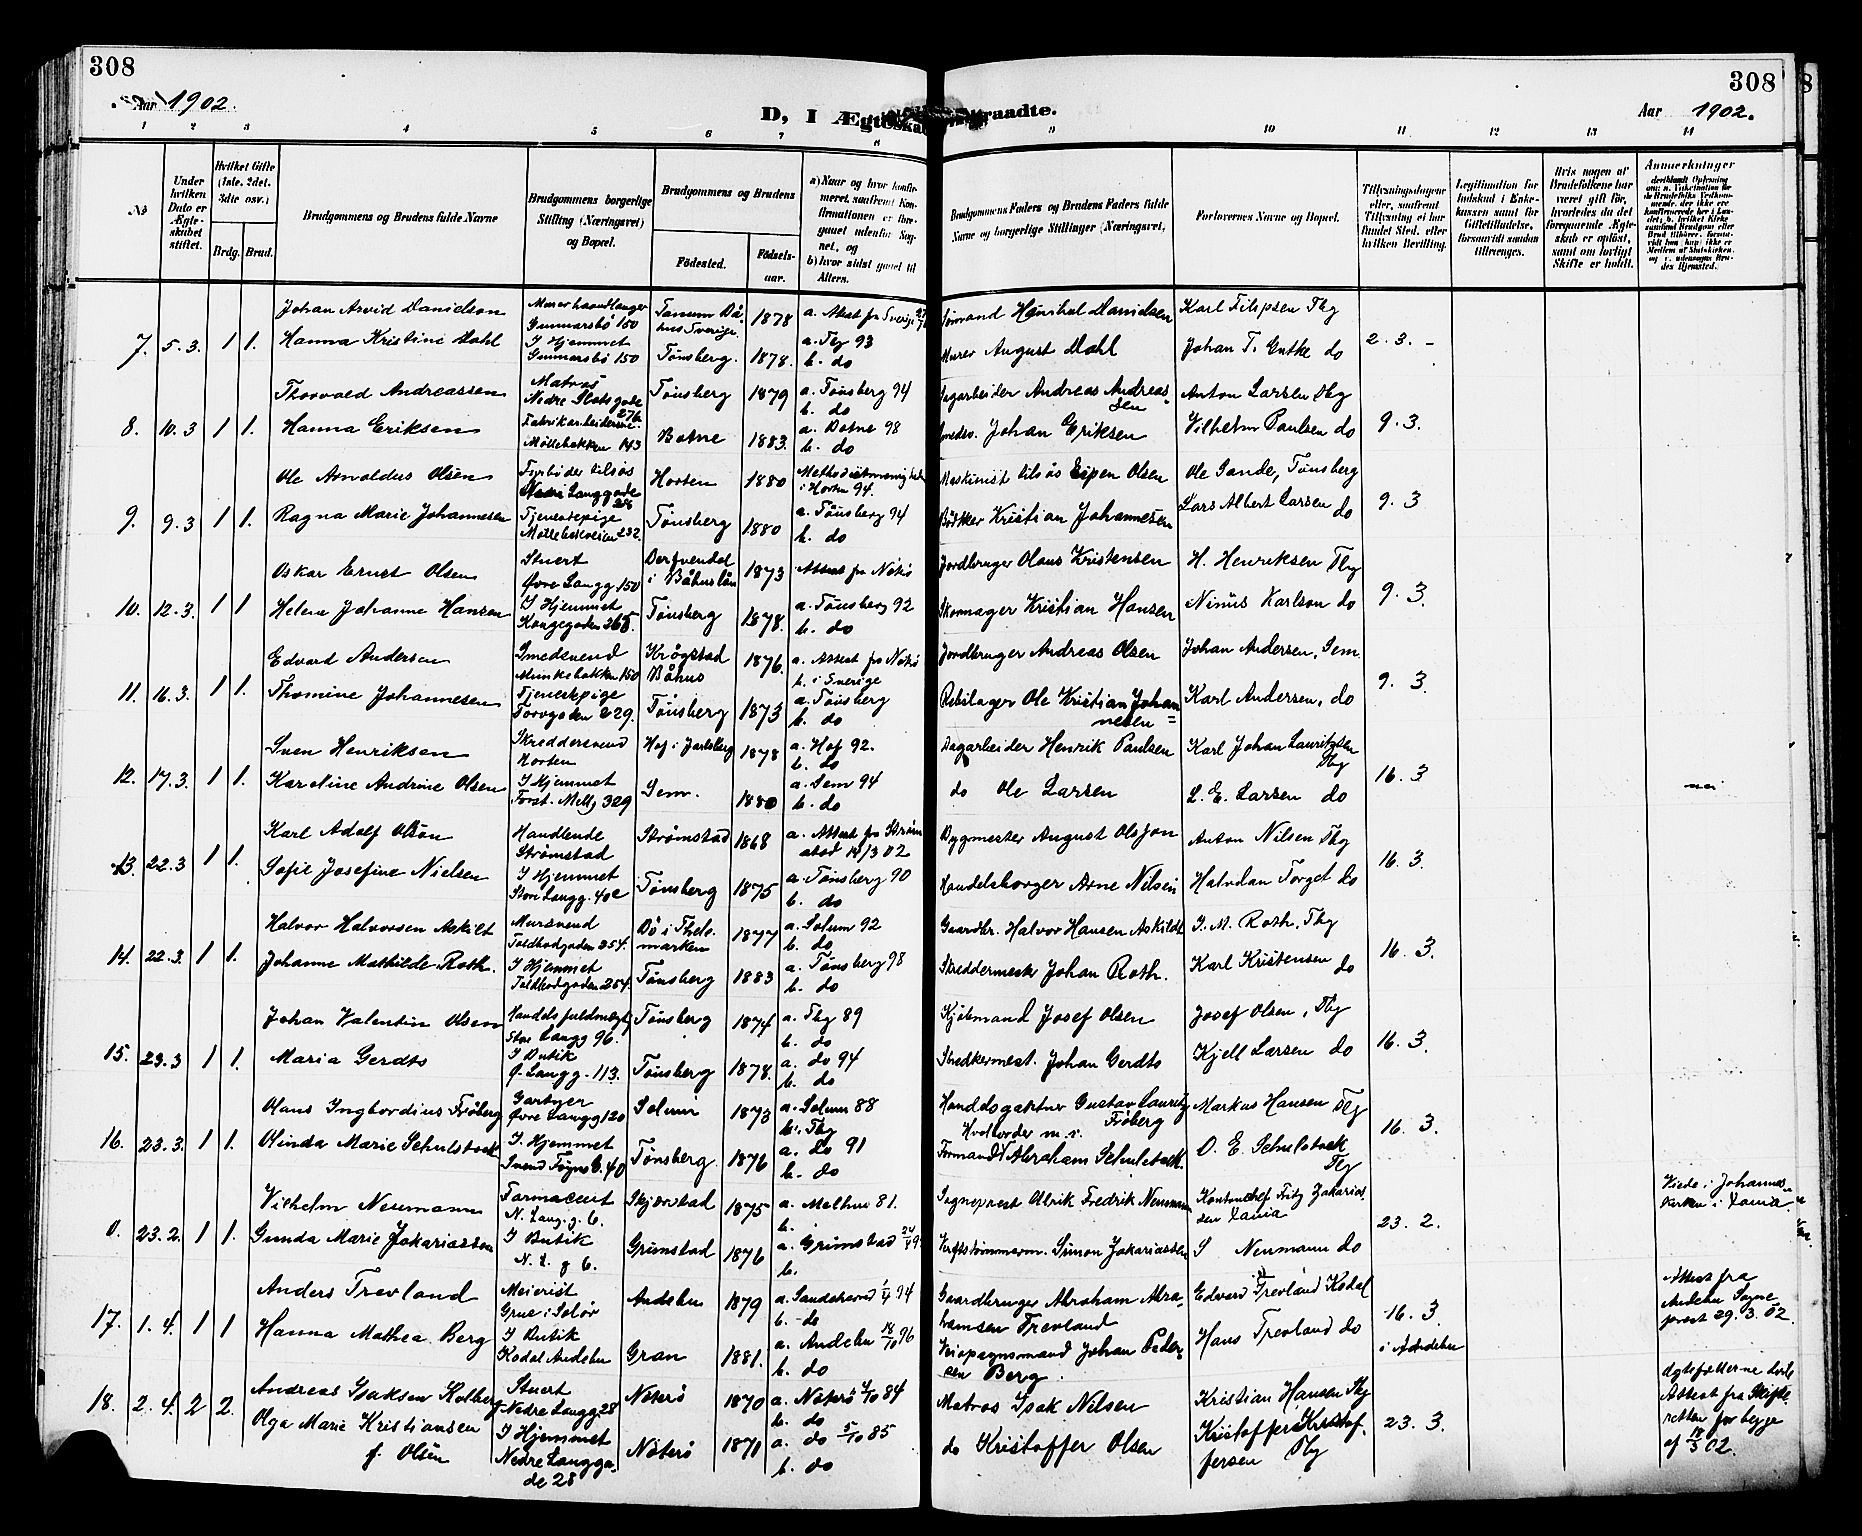 308
Aar 1902.
D, I Ægteska raadte.
308
Aar 1902.
1 2 3 4 5 6 7 8 9 10 11 12 13 14
No
Under hvilken Dato er Ægteskabet stiftet.
Hvilket Gifte (1ste, 2det, 3die osv.)
Brdg. Brud.
Brudgommens og Brudens fulde Navne
Brudgommens borgerlige Stilling (Næringsvei) og Bopæl.
Brudgommens og Brudens
Fødested.
Fødselsaar.
a) Naar og hvor konfirmeret, saafremt Konfirmationen er foregaaet udenfor Sognet, og
b) hvor sidst gaaet til Alters.
Brudgommens Faders og Brudens Faders fulde Navne og borgerlige Stillinger (Næringsvei,
Forlovernes Navne og Bopæl.
Tillysningsdagene eller, saafremt Tillysning ei har fundet Sted, efter hvilken Bevilling.
Legitimation for Indskud i Enkekassen samt for Giftetilladelse, forsaavidt saadan tiltrænges.
Hvis nogen af Brudefolkene har været gift før, hvorledes da det foregaaende Ægteskab er opløst, samt om lovligt Skifte er holdt.
Anmerkninger
7. 5.3. 1 1.
Johan Arvid Danielson
Murerhaandlanger
Gunnarsbö 150
Tanum Båhus Sverige
1878
a. Attest fr Sverige
Formand Danielsen
Karl Filipsen Tbg
2.3. -
Hanna Kristine Dahl
I Hjemmet
Gunnarsbö 150
Tönsberg.
1878.
a. Tbg 93
b. do
Murer August Dahl
Johan T. Gutke do
8. 10.3 1 1.
Thorvald Andreassen
Matros
Nedre Slotsgade 276
Tönsberg
1879
a. Tönsberg 94
b. do
Dagarbeider Andreas Andreassen
Anton Larsen Tbg
9.3.
Hanna Eriksen
Fabrikarbeiderske
Möllebakken 143
Botne
1883.
a. Botne 98
b. do
Smedsv. Johan Eriksen
Vilhelm Paulsen do
9. 9.3 1 1.
Ole Arnoldus Olsen
Fyrböder tilsös
Nedre Langgade
Horten
1880
Methodistmenigheden
i Horten 94.
Maskinist tilsös Espen Olsen
Ole Sande, Tönsberg
9.3
Ragna Marie Johannesen
Tjenestepige
232
Tönsberg
1880
a. Tönsberg 94
b. do
Bödtker Kristian Johannesen
Lars Albert Larsen do
10. 12.3. 1 1
Oskar Ernst Olsen
Stuert
Øvre Langg. 150
i Båhuslän
1873
Attest fr Nötö
Jordbruger Olaus Kristensen
H. Henriksen Tbg
9.3.
Helene Johanne Hansen
I Hjemmet
Kongegaden 268.
Tönsberg
1878.
a. Tönsberg 92
b. do
Skomager Kristian Hansen
Ninus Karlson do
11. 16.3. 1 1.
Edvard Andersen
Smedsvend
Munkebakken 150
Krögstad
Båhus
1876.
a. Attest fr Nötö
b. i Sverige
Jordbruger Andreas Olsen
Johan Andersen, Sem.
9.3.
Thomine Johannesen
Tjenestpige
Torvgaden 229.
Tönsberg
1873
a. Tönsberg
b. do
Rebslager Ole Kristian Johannesen
Karl Andersen, do
12. 17.3. 1 1.
Sven Henriksen
Skreddersvend
Horten
Hof i Jarlsberg
1878
a. Hof 92.
b. do
Dagarbeider Henrik Paulsen
Karl Johan Lauritzsen
Tbg
16.3
Karoline Andrine Olsen
I Hjemmet
329
Sem.
1880
a. Sem 94
b. do
do Ole Larsen
L. E. Larsen do
nei
13. 22.3 1 1.
Karl Adolf Olson
Handlende
Strömstad
Strömstad
1868
a. Attest fra Strömstad 14/3 02
Bygmester August Olsson
Anton Nilsen Tbg
16.3.
Sofie Josefine Nielsen
I Hjemmet
Store Langg. 40e
Tönsberg
1875
a. Tönsberg 90
b. do
Handelsborger Arne Nilsen
Halvdan Torget do
14. 22.3. 1 1.
Halvor Halvorsen Askilt
Mursvend
Toldbodgaden 254.
Bö i Thelemarken
1877
a. Solum 92
b. do
Gaardbr. Halvor Hansen Askildt
J. M. Roth, Tbg
16.3.
Johanne Mathilde Roth.
I Hjemmet
Toldbodgaden 254.
Tönsberg
1883
a. Tönsberg 98
b. do
Skreddermest Johan Roth.
Karl Kristensen do
15. 23.3 1 1.
Johan Valentin Olsen
Handelsfuldmægtig
Store Langg 96.
Tönsberg
1874
a. Tbg 89
b. do
Kjöbmand Josef Olsen
Josef Olsen, Tbg
16.3.
Maria Gerdts
I Butik
Ø. Langg. 113.
Tönsberg
1878.
a. do 94
b. do
Johan Gerdts
Kjell Larsen do
16. 23.3. 1 1.
Olaus Ingbordius Fröberg
Gartner
Øvre Langg 120
Solum
1873
a. Solum 88
b. Tbg
Handelsgartner Gustav Lauritz Fröberg
Markus Hansen Tbg
16.3.
Olinda Marie Schulstock
I Hjemmet
Svend Föyns G. 40
Tönsberg.
1876
a. do 91
b. do
Formand Abraham Schulstock.
O. E. Schulstock
Tbg
0. 23.2. 1 1.
Vilhelm Neumann
Farmaceut
N. Lang. g. 6.
Skjærstad
1875
a. Melhus 81.
b.
Sogneprest Ulrik Fredrik Neumann
Kontorchef Fritz Zakariassen Xania
23.2.
Viede i Johannes
Kirken i Xania.
Gunda Marie Zakariassen
I Butik
N. L. g 6.
Grimstad
1876
a. Grimstad
b.
Verftstømmerm. Simon Zakariassen
S Neumann do
17. 1.4. 1 1
Anders Trevland
Meierist
Grue i Solör
Andebu
1879
a. Sandeherred 94
b. do
Gaardbruger Abraham Abrahamsen Trevland
Edvard Trevland Kodal
16.3
i Andebu
Attest fra
Andebu Sogneprest 29.3.02.
Hanna Mathea Berg
I Butik
Kodal Andebu
Gran
1881.
a. Andebu 18/10 96
b. do
Johan Pedersen Berg.
Hans Trevland do
18. 2.4. 2 2.
Andreas Isaksen Kolberg
Stuert
Nedre Langg 28
Nöterö
1870
a. Nöterö 84
b. do
Matros Isak Nilsen
Kristian Hansen Tbg
23.3.
Attest fra Skifteretten for begge
af 18/3 02.
Olga Marie Kristiansen
f. Olsen
I Hjemmet
Nedre Langgade 28
Nöterö
1871
a. do 5/10 85
b. do
do Kristoffer Olsen
Kristoffer Kristoffersen Tbg